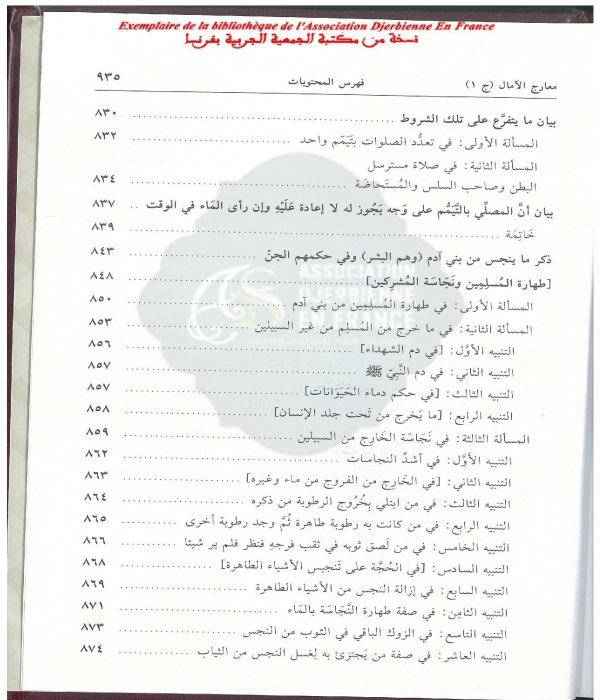 Exemplaire de la bibliothèque de l'Association Djerbienne En France
نسخة من مكتبة الجمعية الجربية بفرنسا
معارج الآمال (ج ١) فهرس المحتويات ٩٣٥
بيان ما يتفرَّع على تلك الشروط ٨٣٠
المسألة الأولى: في تعدُّد الصلوات بتَيَمّم واحد ٨٣٢
المسألة الثانية: في صلاة مسترسل
البطن وصاحب السلس والمُستَحاضَة ٨٣٤
بيان أنَّ المصلّي بالتَّيَمُّم على وَجه يَجُوز له لا إعادة عَلَيْهِ وإن رأى المَاء في الوقت .. ٨٣٧
خَاتِمَة ٨٣٩
ذكر ما ينجس من بني آدم (وهم البشر) وفي حكمهم الجنّ ٨٤٣
[طهارة المُسلِمِين ونَجَاسَة المُشركين] ٨٤٨
المسألة الأولى: في طهارة المُسلِمِين من بني آدم ٨٥٠
المسألة الثانية: في ما خرج من المُسلِم من غير السبيلين ٨٥٣
التنبيه الأوَّل: [في دم الشهداء] ٨٥٦
التنبيه الثاني: في دم النَّبِيّ ﷺ ٨٥٧
التنبيه الثالث: [في حكم دماء الحَيَوَانات] ٨٥٧
التنبيه الرابع: [ما يَخرج من تَحت جلد الإنسان] ٨٥٨
المسألة الثالثة: في نَجَاسَة الخَارِج من السبيلين ٨٥٩
التنبيه الأَوَّل: في أشدّ النجاسات ٨٦٢
التنبيه الثاني: [في الخَارِج من الفروج من ماء وغيره] ٨٦٣
التنبيه الثالث: في من ابتلي بِخُرُوج الرطوبة من ذكره ٨٦٤
التنبيه الرابع: في من كانت به رطوبة طاهرة ثُمَّ وجد رطوبة أخرى ٨٦٥
التنبيه الخامس: في من لَصق ثوبه في ثقب فرجهِ فنظر فلم ير شيئا ٨٦٦
التنبيه السادس: [في الحُجَّة على تَنجيس الأشياء الطاهرة] ٨٦٨
التنبيه السابع: في إزالة النجس من الأشياء الطاهرة ٨٦٩
التنبيه الثامن: في صفة طهارة النَّجَاسَة بالمَاء ٨٧١
التنبيه التاسع: في الزوك الباقي في الثوب من النجس ٨٧٣
التنبيه العاشر: في صفة من يَجتزئ به لِغسل النجس من الثياب ٨٧٤
ASSOCIATION
DJERBIENNE
EN FRANCE